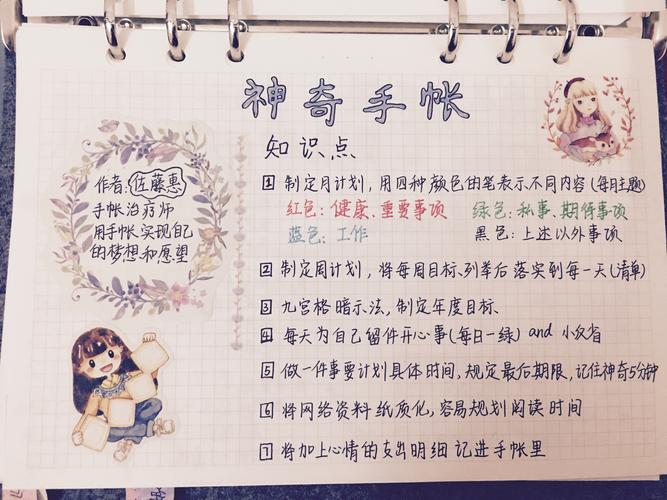 神奇手帐
作者:佐藤惠
手帐治疗师
用手帐实现自己
的梦想和愿望
知识点
1 制定月计划,用四种颜色的笔表示不同内容(每月主题)
红色:健康、重要事项 绿色:私事、期待事项
蓝色:工作 黑色:上述以外事项
2 制定周计划,将每周目标、列举后落实到每一天(清单)
3 九宫格暗示法,制定年度目标.
4 每天为自己留件开心事(每日一绿) and 小反省
5 做一件事要计划具体时间,规定最后期限,记住神奇5分钟
6 将网络资料纸质化,容易规划阅读时间
7 将加上心情的支出明细记进手帐里